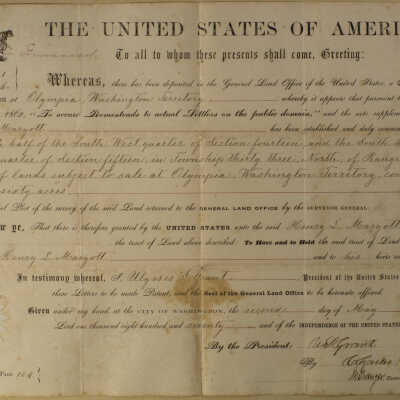 THE UNITED STATES OF AMERI
To all to whom these presents shall come, Greeting:
Whereas, there has been deposited in the General Land Office of the United States, a
at Olympia Washington Territory whereby it appears that pursuant to
1862, "To secure Homesteads to actual Settlers on the public domain," and the acts supplem
Maryott has been established and duly consumm
half of the South West quarter of Section fourteen, and the South
quarter of Section fifteen, in Township thirty three, North, of Range
of lands subject to sale at Olympia, Washington Territory, con
sixty acres
Plat of the survey of the said Land returned to the GENERAL LAND OFFICE by the SURVEYOR GENERAL
ye, That there is therefore granted by the UNITED STATES unto the said Henry L. Maryott
the tract of Land above described To Have and to Hold the said tract of Land
Henry L. Maryott and to his heirs
In testimony whereof, I, Ulysses S. Grant President of the United States
these Letters to be made Patent, and the Seal of the General Land Office to be hereunto affixed.
Given under my hand at the CITY OF WASHINGTON, the second day of May
Lord one thousand eight hundred and seventy and of the INDEPENDENCE OF THE UNITED STATES
By the President: U.S. Grant
By
Page 104